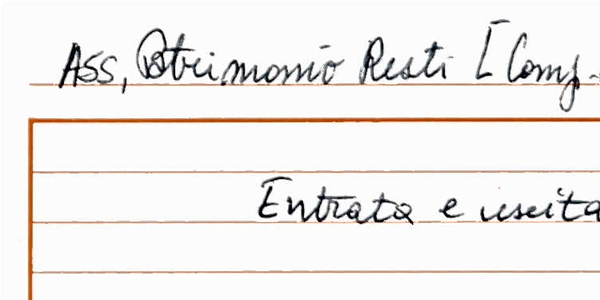 Ass, Patrimonio Resti [Comp.
Entrata e uscita